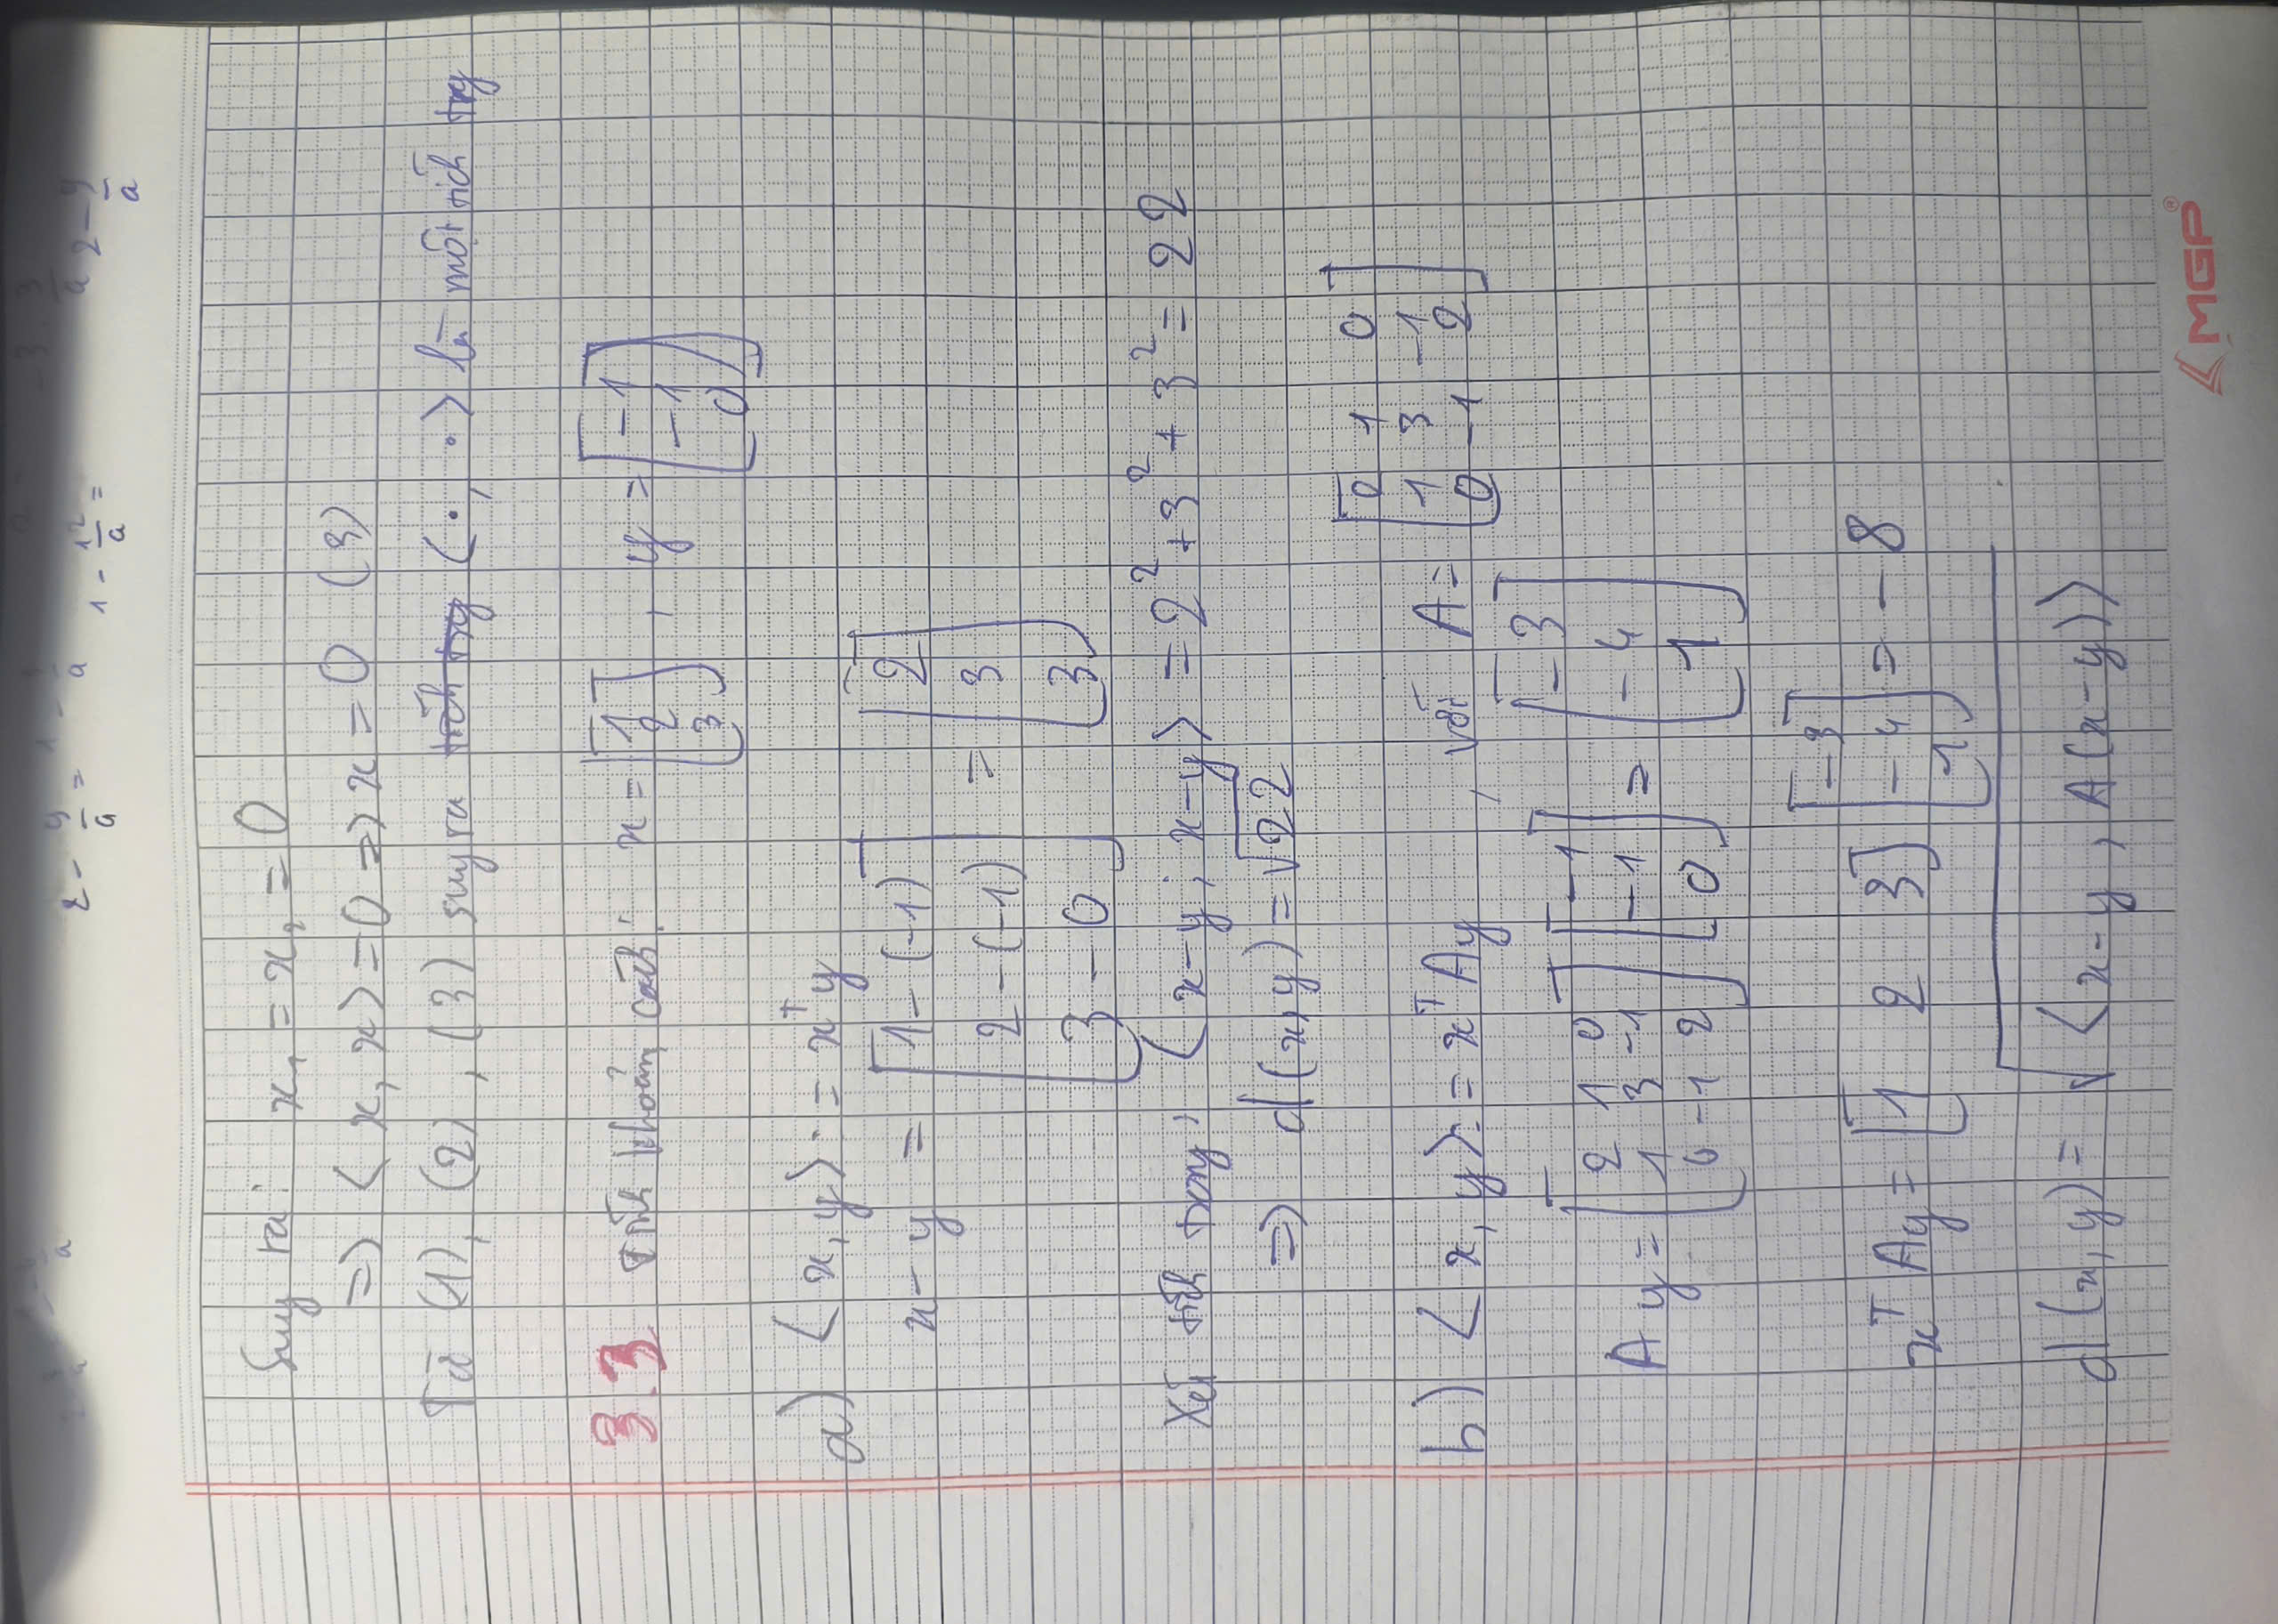 Suy ra: x₁ = x₂ = 0
=> ⟨x, x⟩ = 0 => x = 0 (3)
Từ (1), (2), (3) suy ra ⟨·, ·⟩ là một tích
3.3 Tính khoảng cách: x = [1 2 3], y = [-1 -1 0]
a) ⟨x, y⟩ := xᵀy
x - y = [1-(-1) 2-(-1) 3-0] = [2 3 3]
Xét tích trong, ⟨x-y; x-y⟩ = 2² + 3² + 3² = 22
=> d(x, y) = √22
b) ⟨x, y⟩ := xᵀAy, với A = [2 1 0 1 3 -1 0 -1 2]
Ay = [2 1 0 1 3 -1 0 -1 2] [-1 -1 0] = [-3 -4 1]
xᵀAy = [1 2 3] [-3 -4 1] = -8
d(x, y) = √⟨x-y, A(x-y)⟩
MGP®